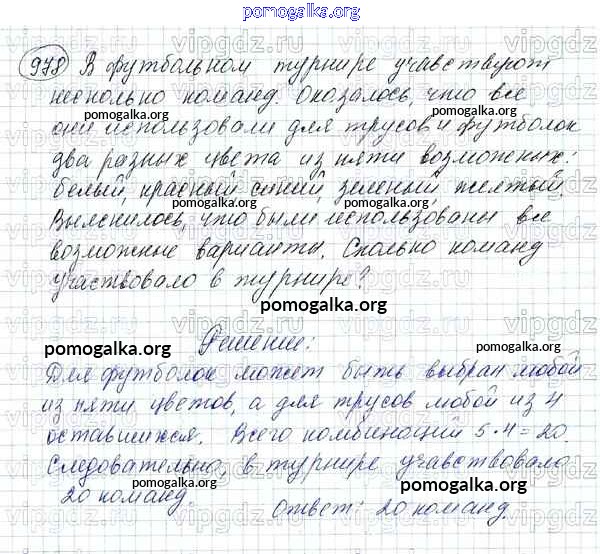 pomogalka.org
978 В футбольном турнире учавствуют
несколько команд. Оказалось, что все
pomogalka.org pomogalka.org
они использовали для трусов и футболок
два разных цвета из пяти возможных:
белый, красный синий, зеленый, желтый.
pomogalka.org pomogalka.org
Выяснилось, что были использованы все
возможные варианты. Сколько команд
участвовало в турнире?
pomogalka.org
pomogalka.org Решение: pomogalka.org
Для футболок может быть выбран любой
из пяти цветов, а для трусов любой из 4
оставшихся. Всего комбинаций 5·4=20.
Следовательно, в турнире учавствовало
pomogalka.org pomogalka.org
20 команд.
Ответ: 20 команд.